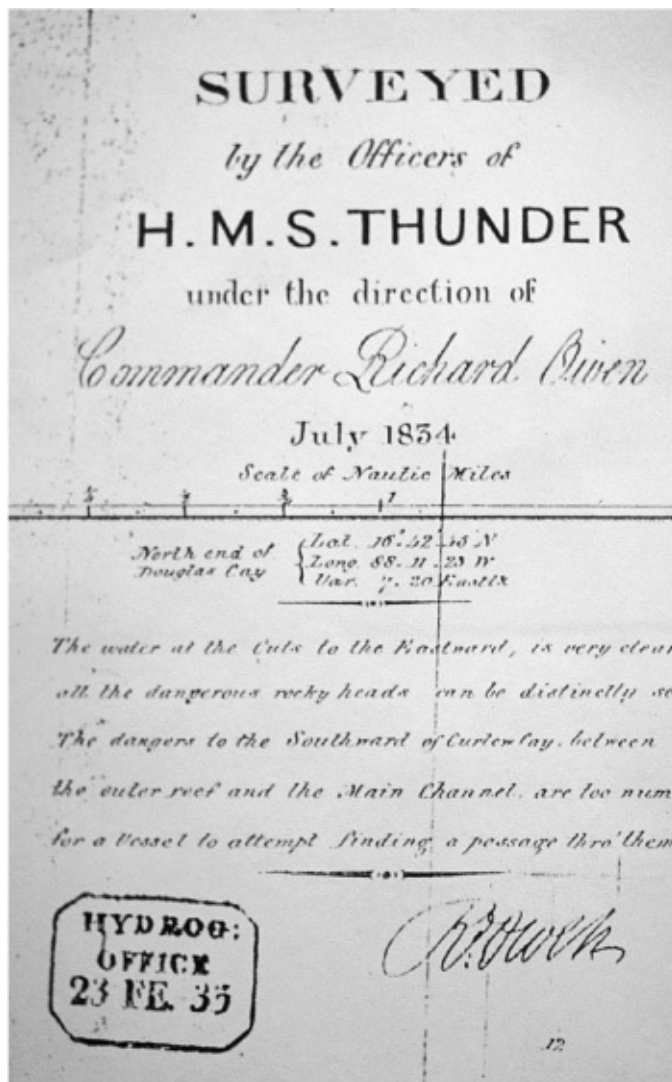 SURVEYED
by the Officers of
H.M.S. THUNDER
under the direction of
Commander Richard Owen
July 1834
Scale of Nautic Miles
1
North end of Douglas Cay { Lat. 16° 42' 45 N
Long. 88. 11. 23 W
Var. 7. 20 East
The water at the Cuts to the Eastward, is very clear
all the dangerous rocky heads can be distinctly se
The dangers to the Southward of Curlew Cay, between
the outer reef and the Main Channel, are too num
for a Vessel to attempt finding a passage thro' them
R. Owen
HYDROG:
OFFICE
23 FE. 35
12